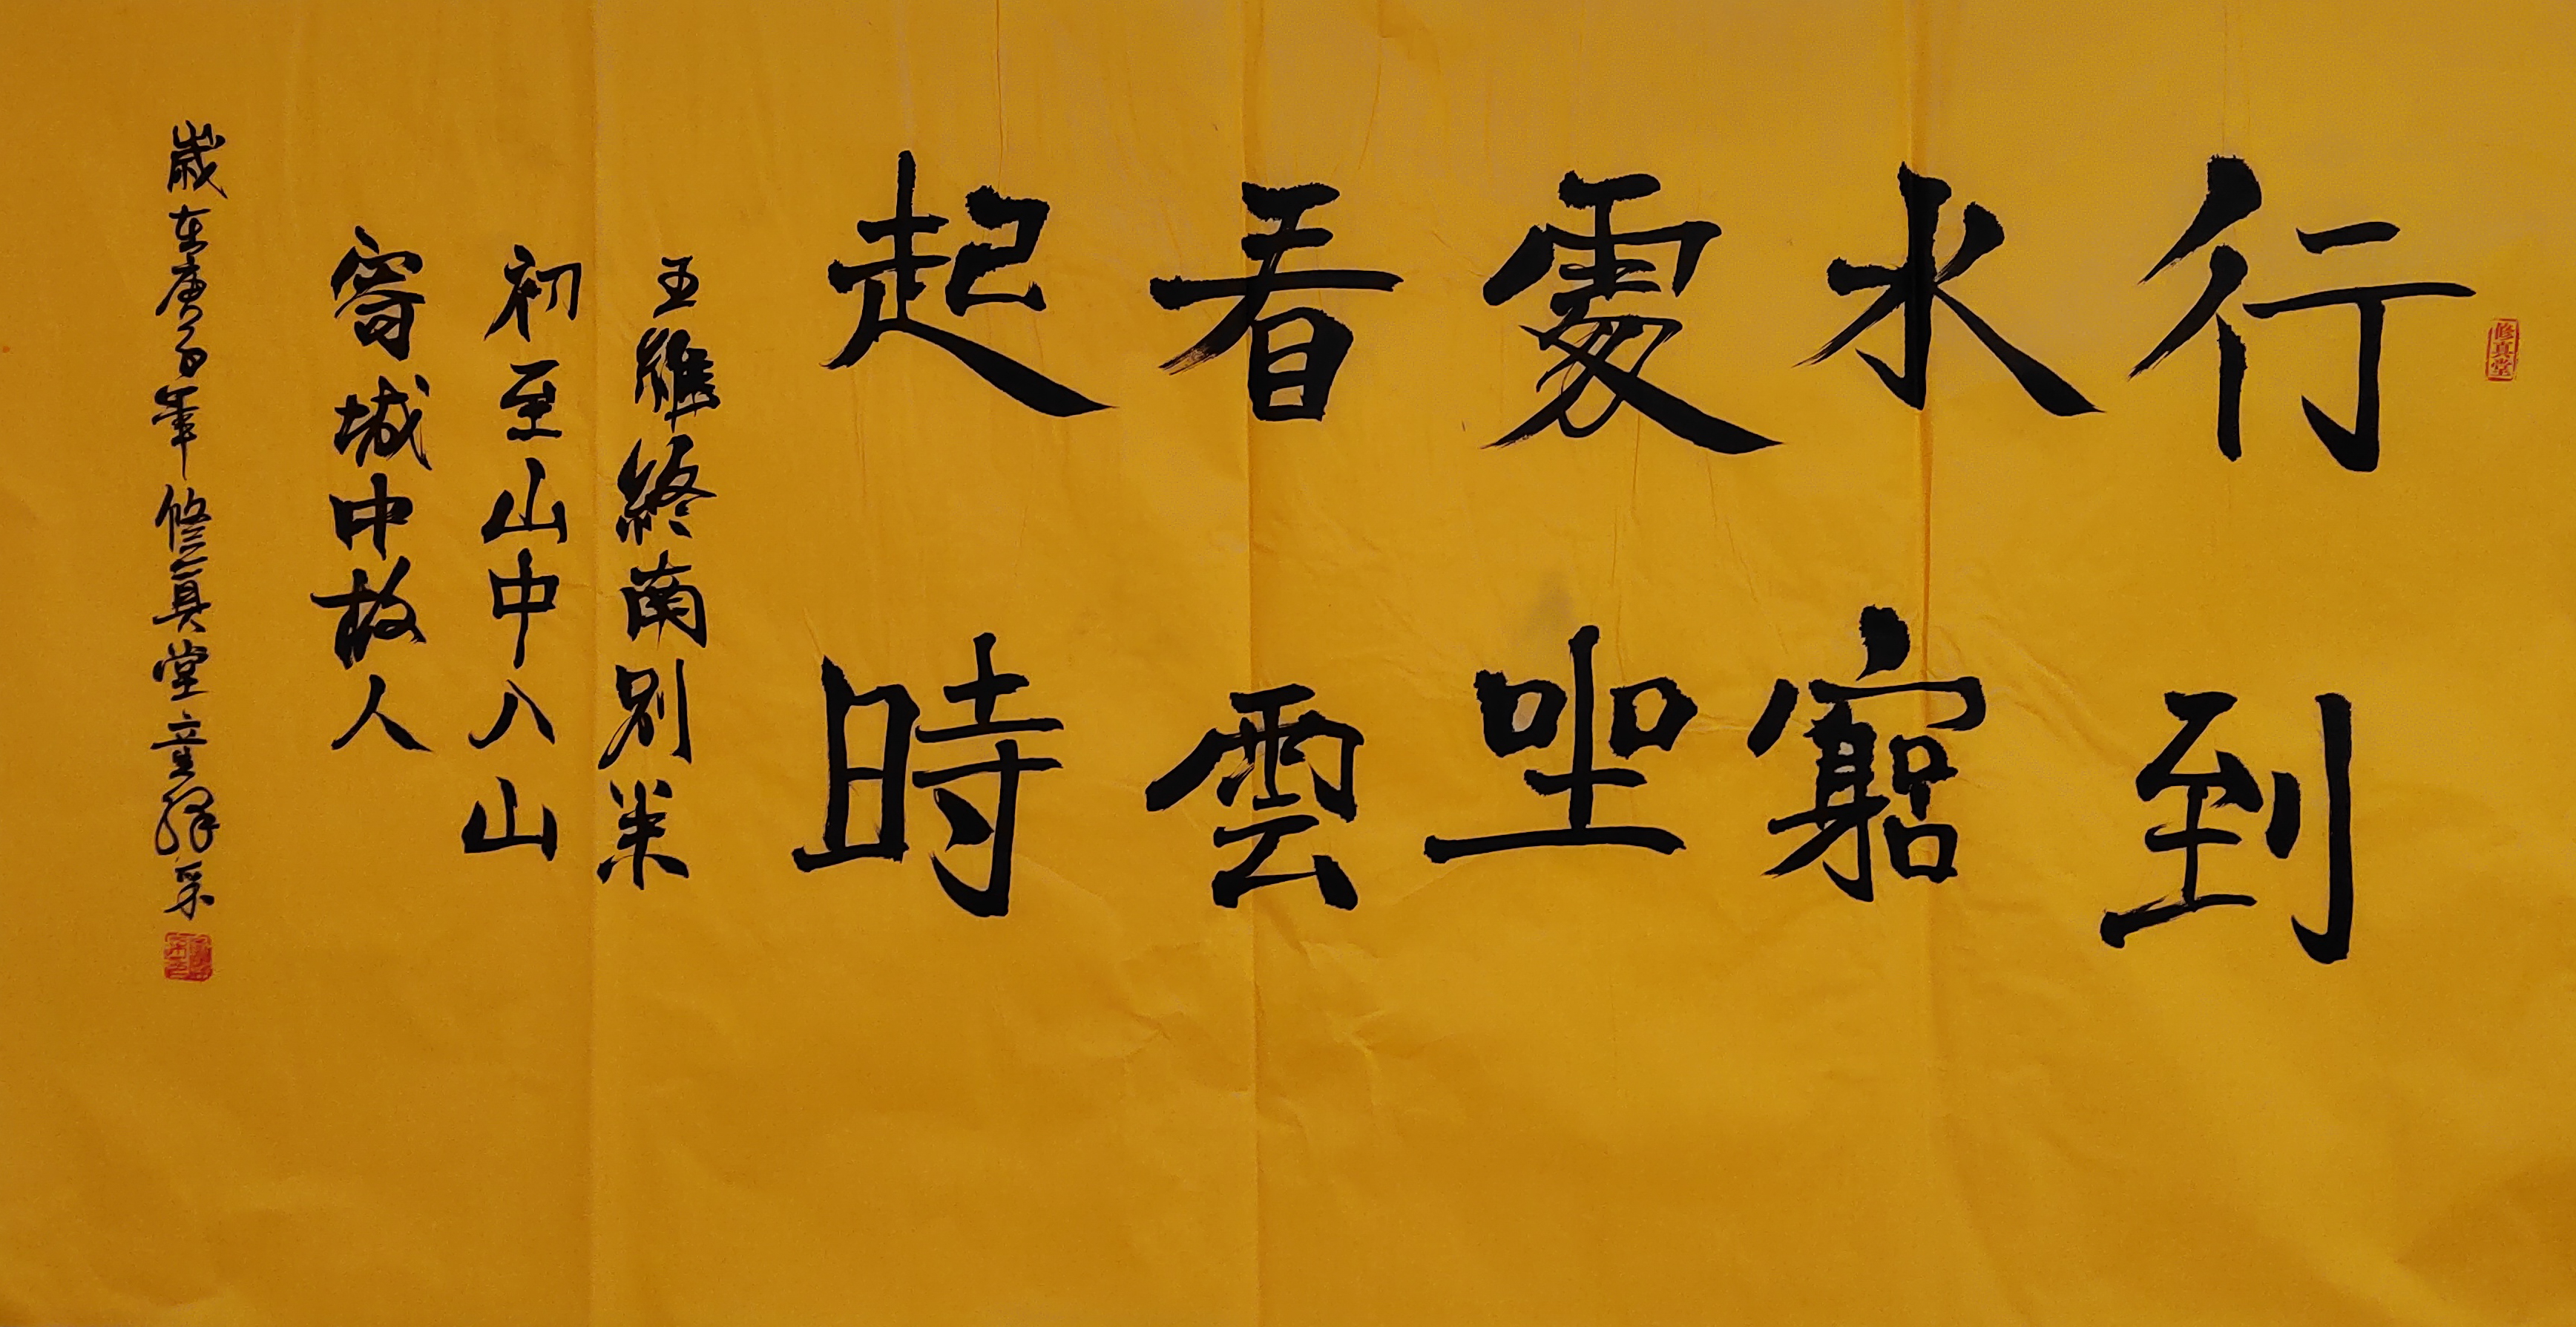 修真堂
行到
水窮
處坐
看雲
起時
王維終南別業
初至山中入山
寄城中故人
歲在庚子年修真堂